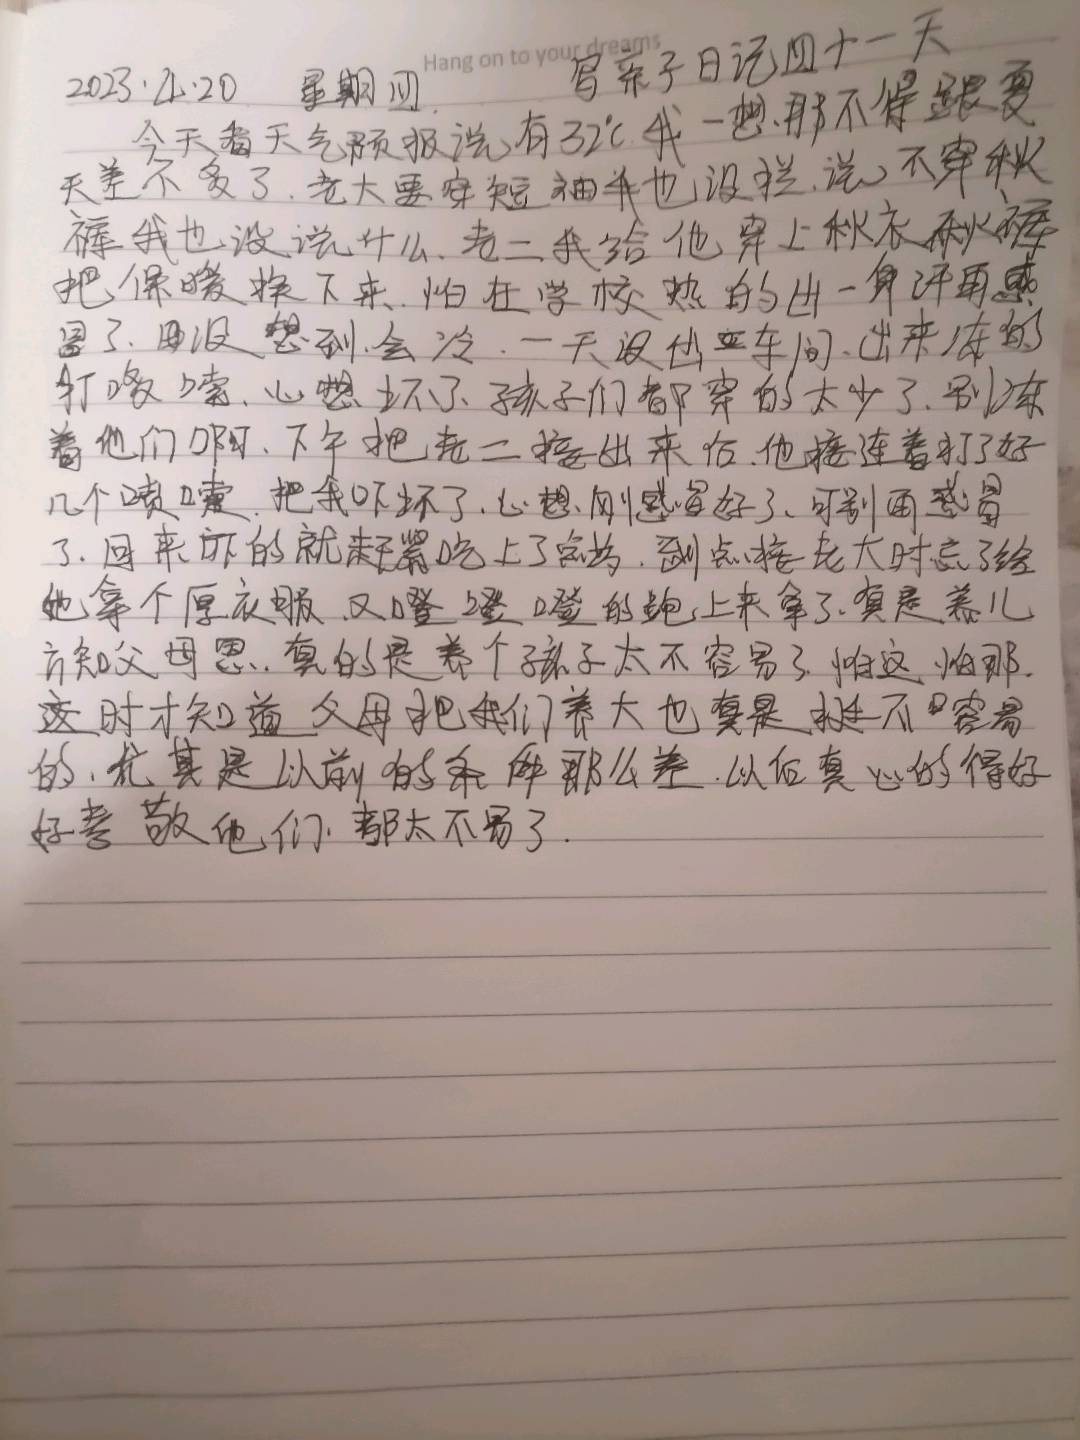 Hang on to your dreams
2023.4.20 星期四 写亲子日记四十一天
今天看天气预报说有32℃.我一想.那不得跟夏
天差不多了.老大要穿短袖我也没拦.说不穿秋
裤我也没说什么.老二我给他穿上秋衣秋裤
把保暖换下来.怕在学校热的出一身汗再感
冒了.毌没想到会冷.一天没出车间.出来冻的
打哆嗦.心想坏了.孩子们都穿的太少了.别冻
着他们啊.下午把老二接出来后.他接连着打了好
几个喷嚏.把我吓坏了.心想.刚感冒好了.可别再感冒
了.回来吓的就赶紧吃上了点药.到点接老大时忘了给
她拿个厚衣服.又噔噔噔的跑上来拿了.真是养儿
方知父母恩.真的是养个孩子太不容易了.怕这怕那.
这时才知道父母把我们养大也真是挺不容易
的.尤其是以前的条件那么差.以后真心的得好
好孝敬他们.都太不易了.